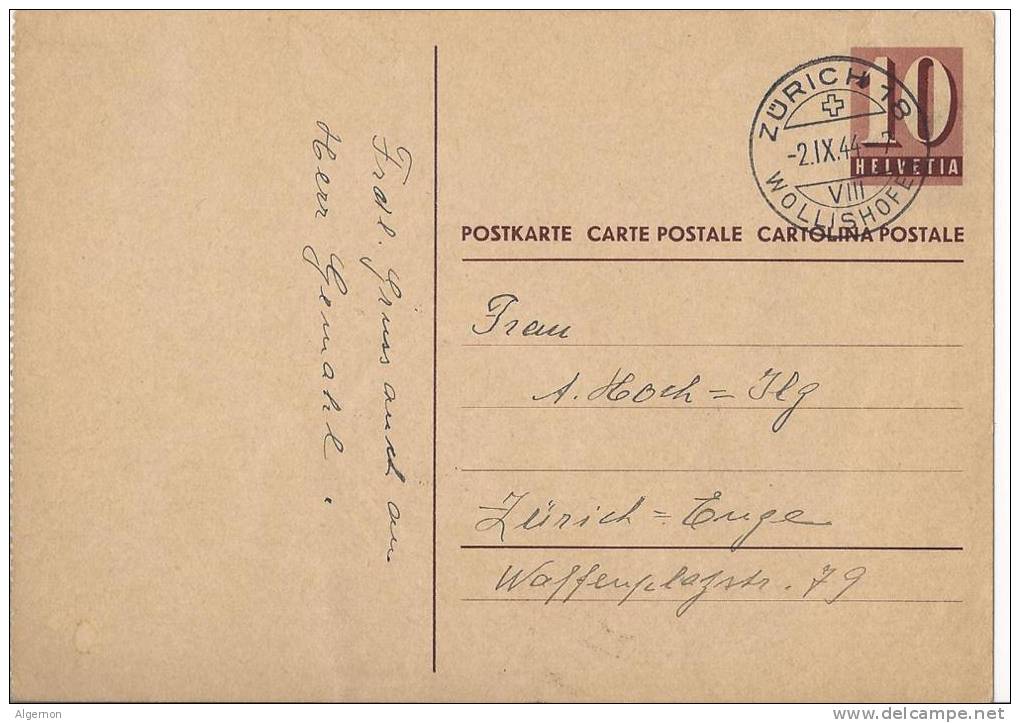 Frdl. Gruss auch an
Herr Gemahl.
ZÜRICH 18
-2.IX.44- 7
VIII
WOLLISHOFEN
10
HELVETIA
POSTKARTE CARTE POSTALE CARTOLINA POSTALE
Frau
A. Hoch=Ilg
Zürich=Enge
Waffenplatzstr. 79
Algemon
delcampe.net